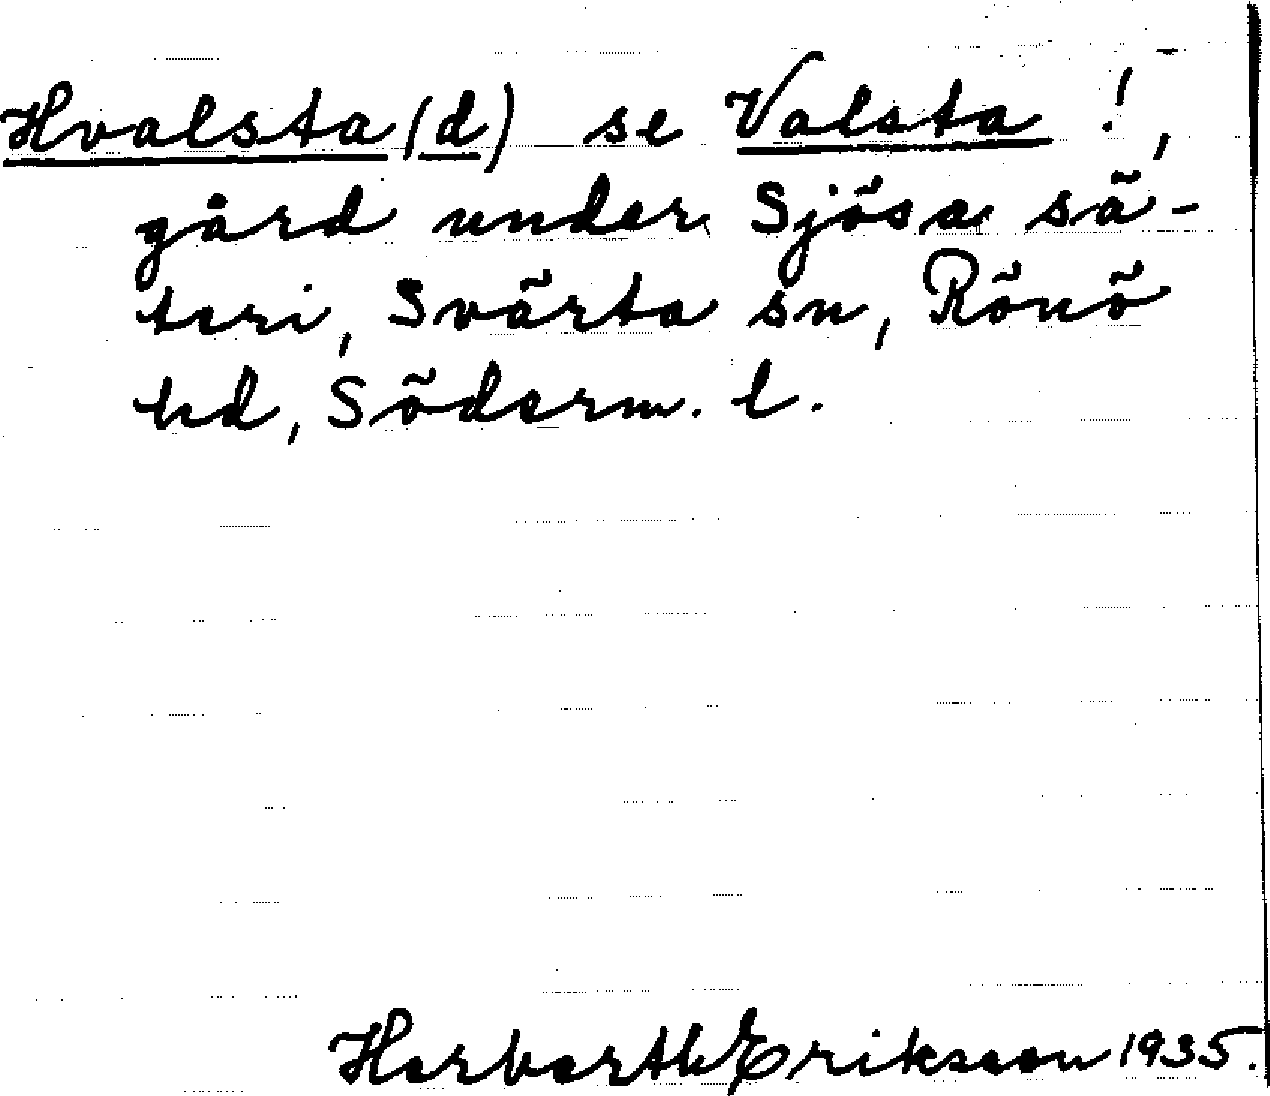 Hvalsta(d) se Valsta!,
gård under Sjösa sä-
teri, Svärta sn, Rönö
hd, Söderm. l.
Herberth Eriksson 1935.